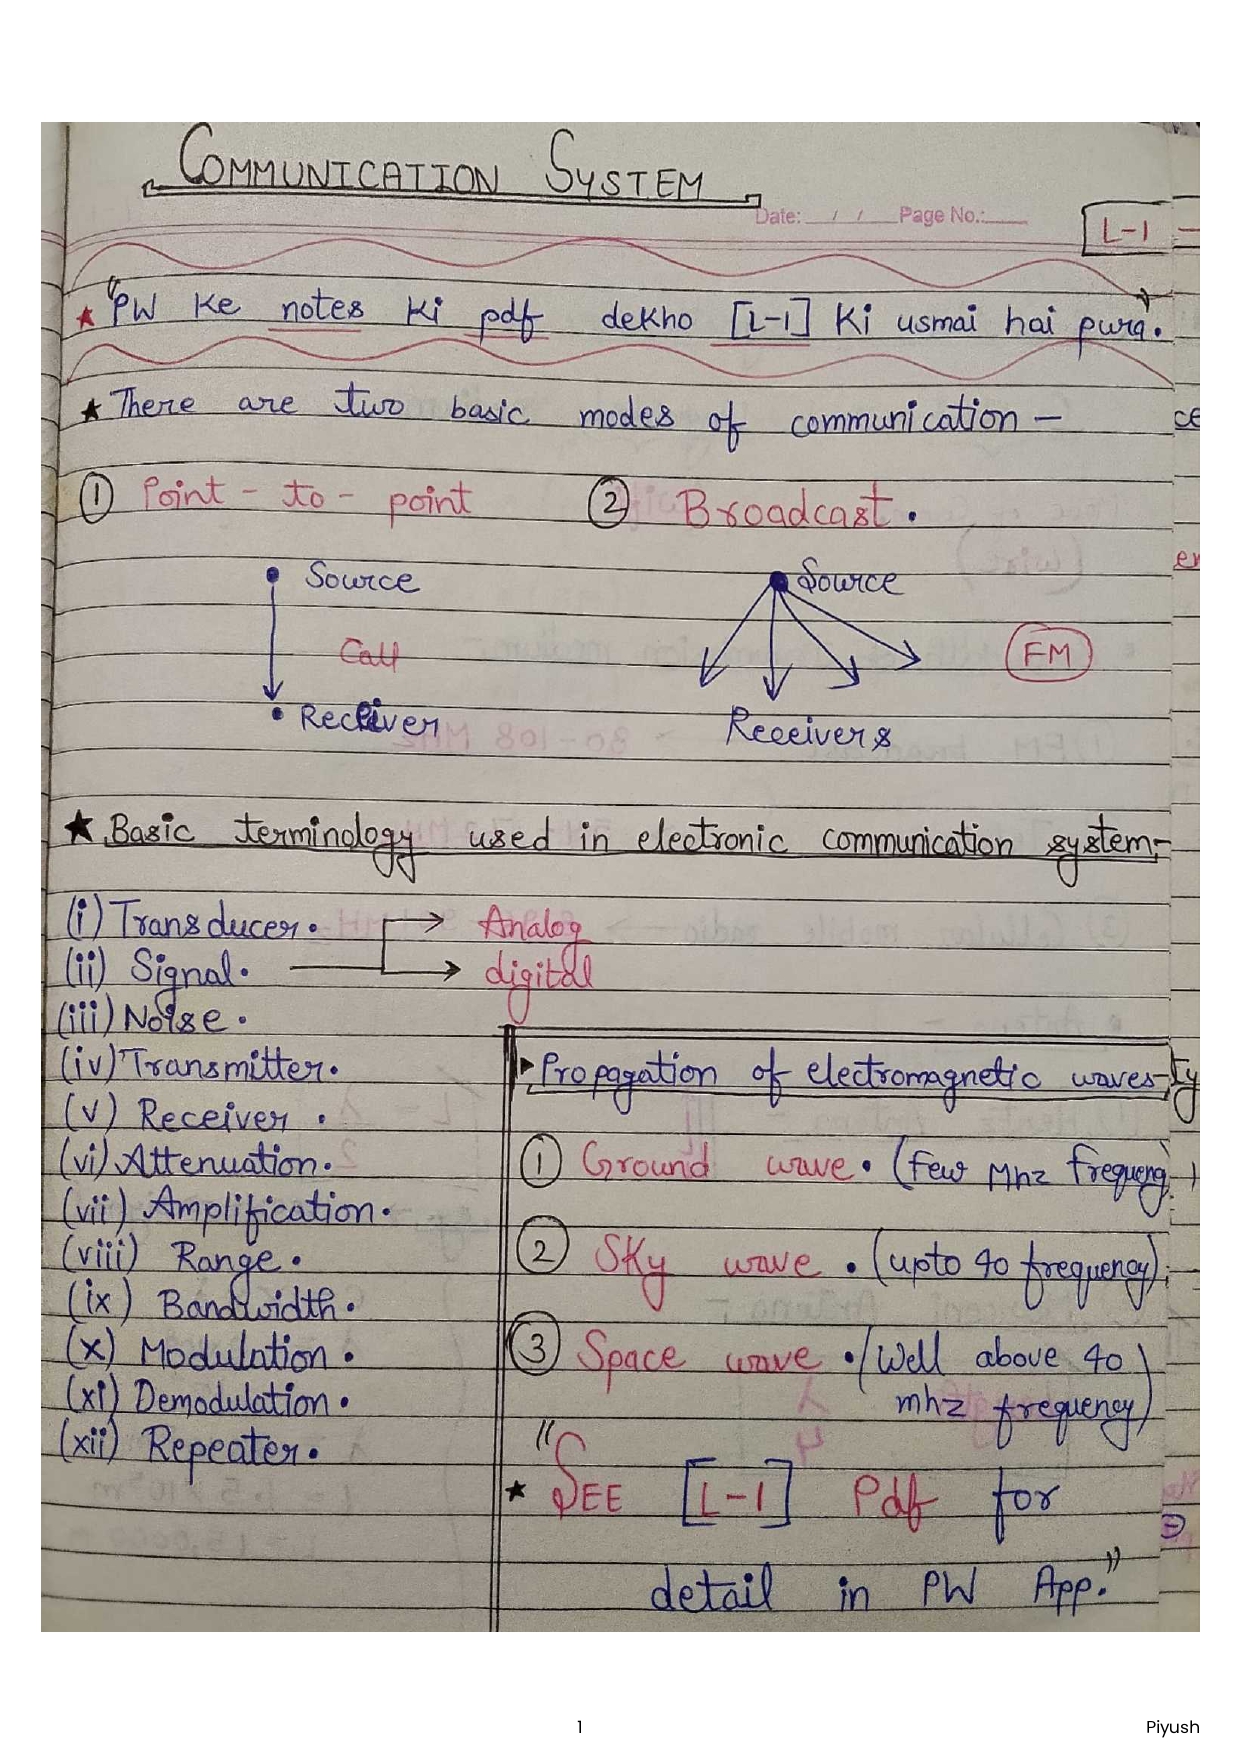 COMMUNICATION SYSTEM
Date: / / Page No.:
L-1
★ "PW Ke notes Ki pdf dekho [L-1] Ki usmai hai pura.
★ There are two basic modes of communication –
① Point-to-point ② Broadcast.
Source Source
Call FM
Receiver Receivers
★ Basic terminology used in electronic communication system:-
(i) Transducer. Analog
(ii) Signal. digital
(iii) Noise.
(iv) Transmitter.
(v) Receiver.
(vi) Attenuation.
(vii) Amplification.
(viii) Range.
(ix) Bandwidth.
(x) Modulation.
(xi) Demodulation.
(xii) Repeater.
Propagation of electromagnetic waves-
① Ground wave. (few Mhz frequency)
② Sky wave. (upto 40 frequency)
③ Space wave. (Well above 40
mhz frequency)
★ "SEE [L-1] Pdf for
detail in PW App."
1 Piyush